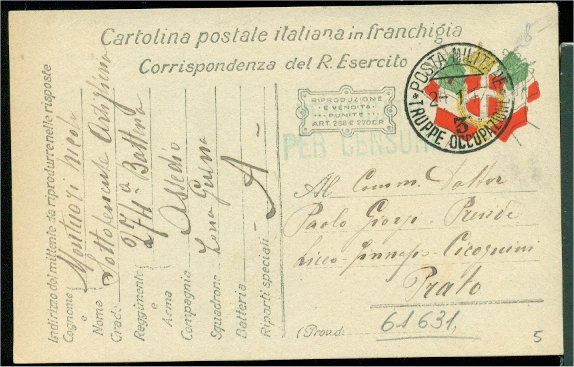 Cartolina postale italiana in franchigia
Corrispondenza del R. Esercito
RIPRODUZIONE
E VENDITA
PUNITE
ART. 256 E 270 C.P.
POSTA MILITARE
3
TRUPPE OCCUPAZIONE
PER CENSURA
Indirizzo del mittente da riprodurre nelle risposte
Cognome
e
Nome
Grad. Sottotenente Artiglieria
Reggimento 274a Batteria
Arma
Compagnia Assedio
Squadrone Zona Guerra
Batteria
Riparti speciali A
Al Comm. Dottor
Paolo Giorgi Preside
Liceo Ginnasio Cicognini
Prato
(Prov. di
61631.
5